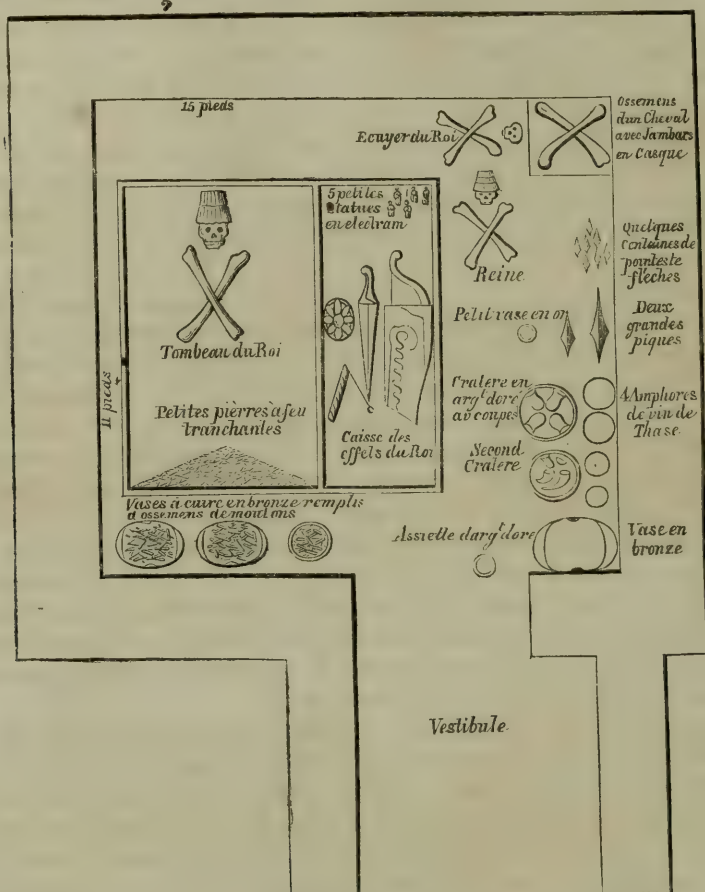 15 pieds
Ecuyer du Roi
Ossemens
dun Cheval
avec Jambars
en Casque
5 petites
statues
en electram
Reine
Quelques
centaines de
pointes te
flèches
Tombeau du Roi
Petit vase en or
Deux
grandes
piques
11 pieds
Petites pièrres à feu
tranchantes
Caisse des
effets du Roi
Cratere en
arg.t doré
av coupes
4 Amphores
de vin de
Thase
Second
Cratere
Vases à cuire en bronze remplis
d'ossemens de moutons
Assiette d'arg.t doré
Vase en
bronze
Vestibule